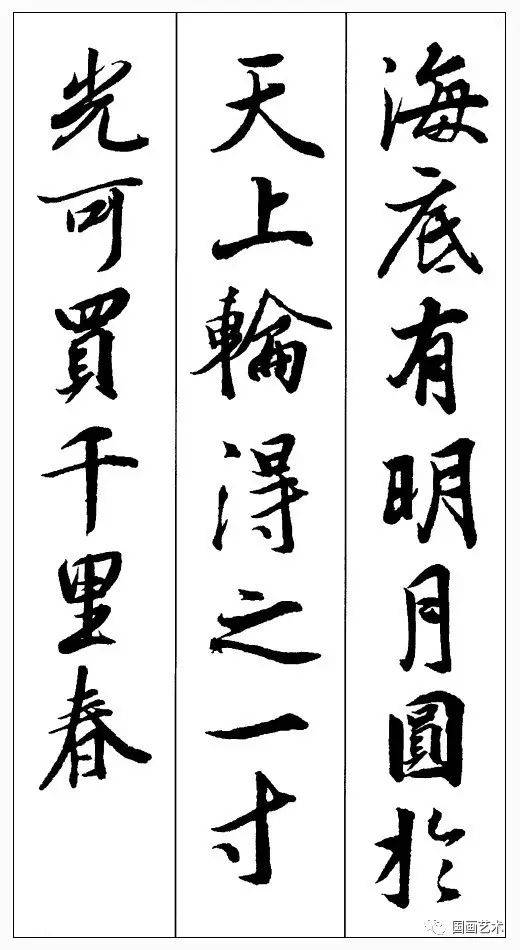 海底有明月圓於
天上輪得之一寸
光可買千里春
国画艺术